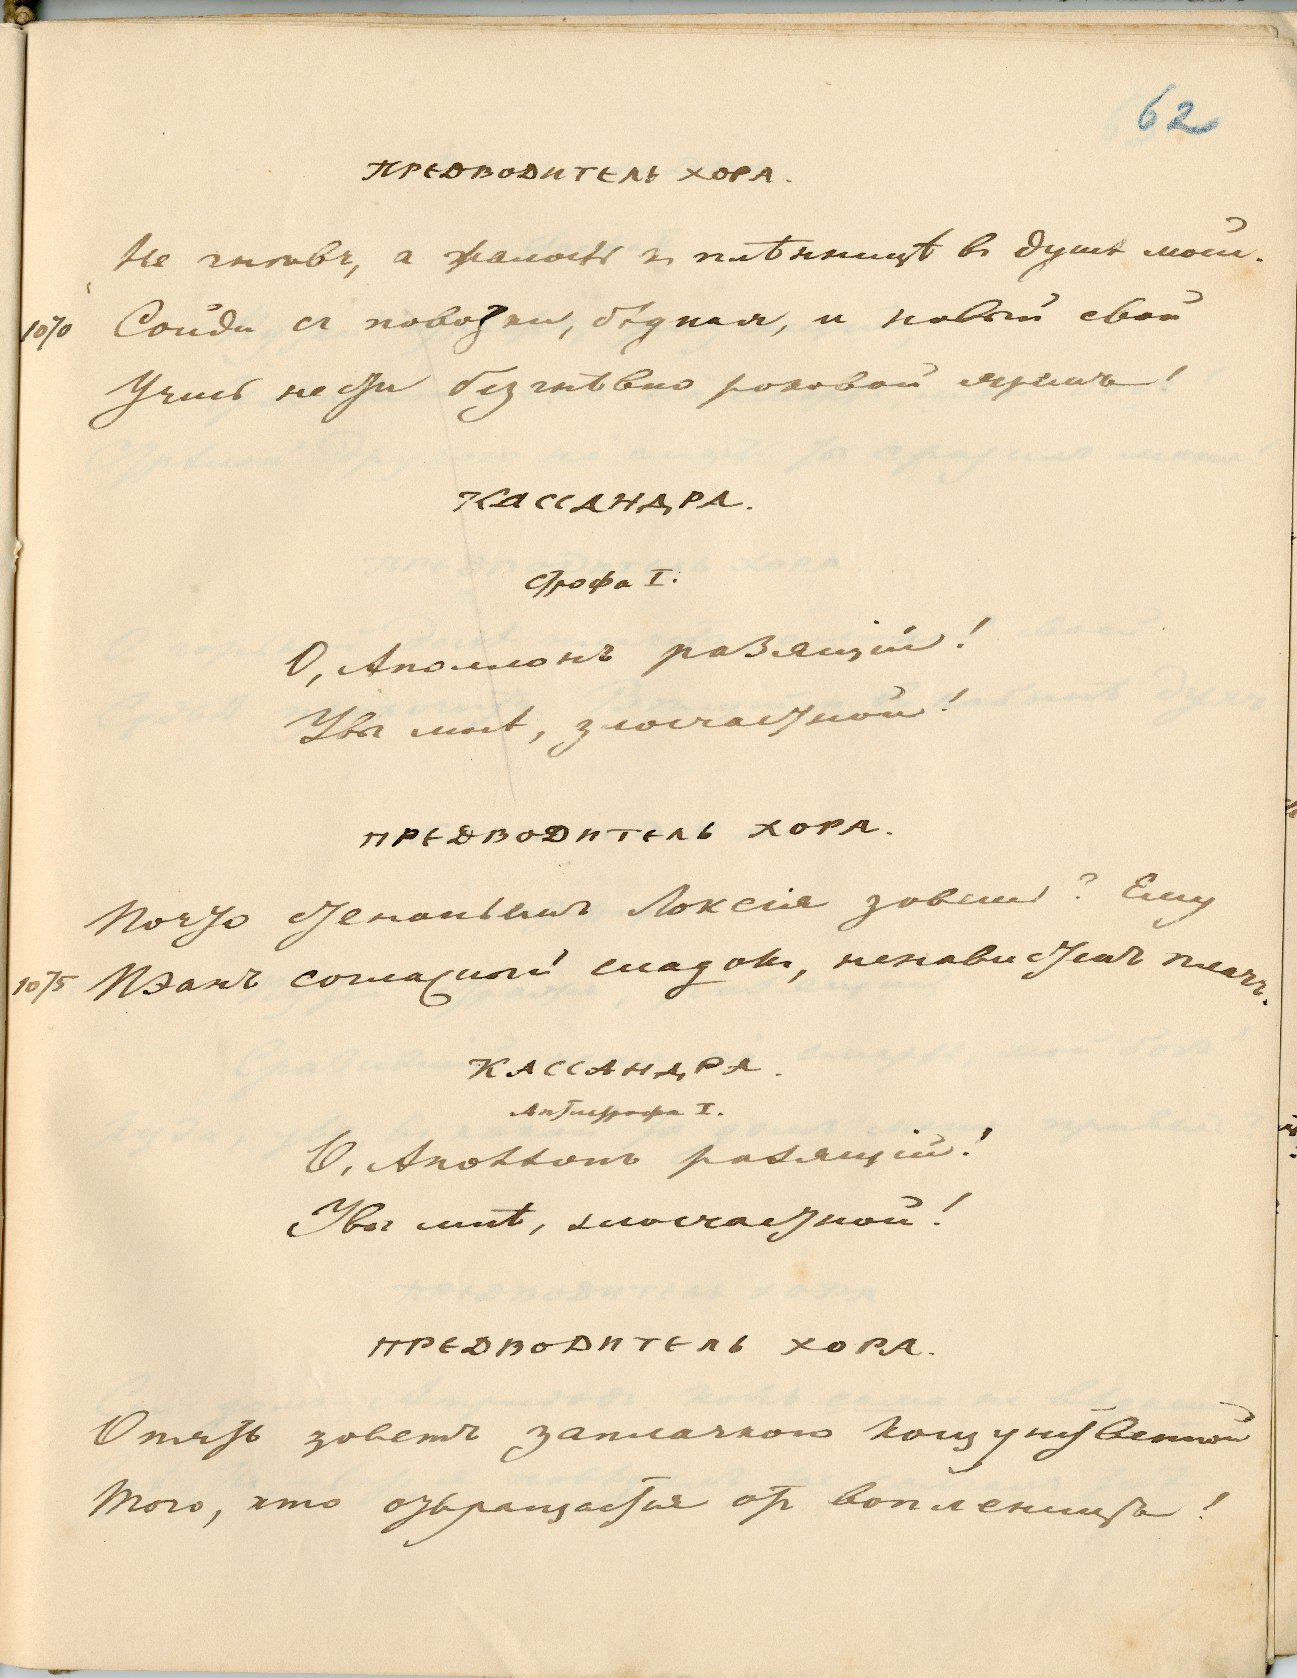 62
ПРЕДВОДИТЕЛЬ ХОРА.
Не гнѣвъ, а жалость къ плѣнницѣ въ душѣ моей.
1070 Сойди съ повозки, бѣдная, и новый свой
Учись нести безгнѣвно роковой яремъ!
КАССАНДРА.
Строфа I.
О, Аполлонъ разящій!
Увы мнѣ, злосчастной!
ПРЕДВОДИТЕЛЬ ХОРА.
Почто стенаньемъ Локсія зовешь? Ему
1075 Пэанъ согласный сладокъ, ненавистенъ плачъ.
КАССАНДРА.
Антистрофа I.
О, Аполлонъ разящій!
Увы мнѣ, злосчастной!
ПРЕДВОДИТЕЛЬ ХОРА.
Опять зоветъ заплачкою кощунственной
Того, кто отвращается отъ вопленницъ!